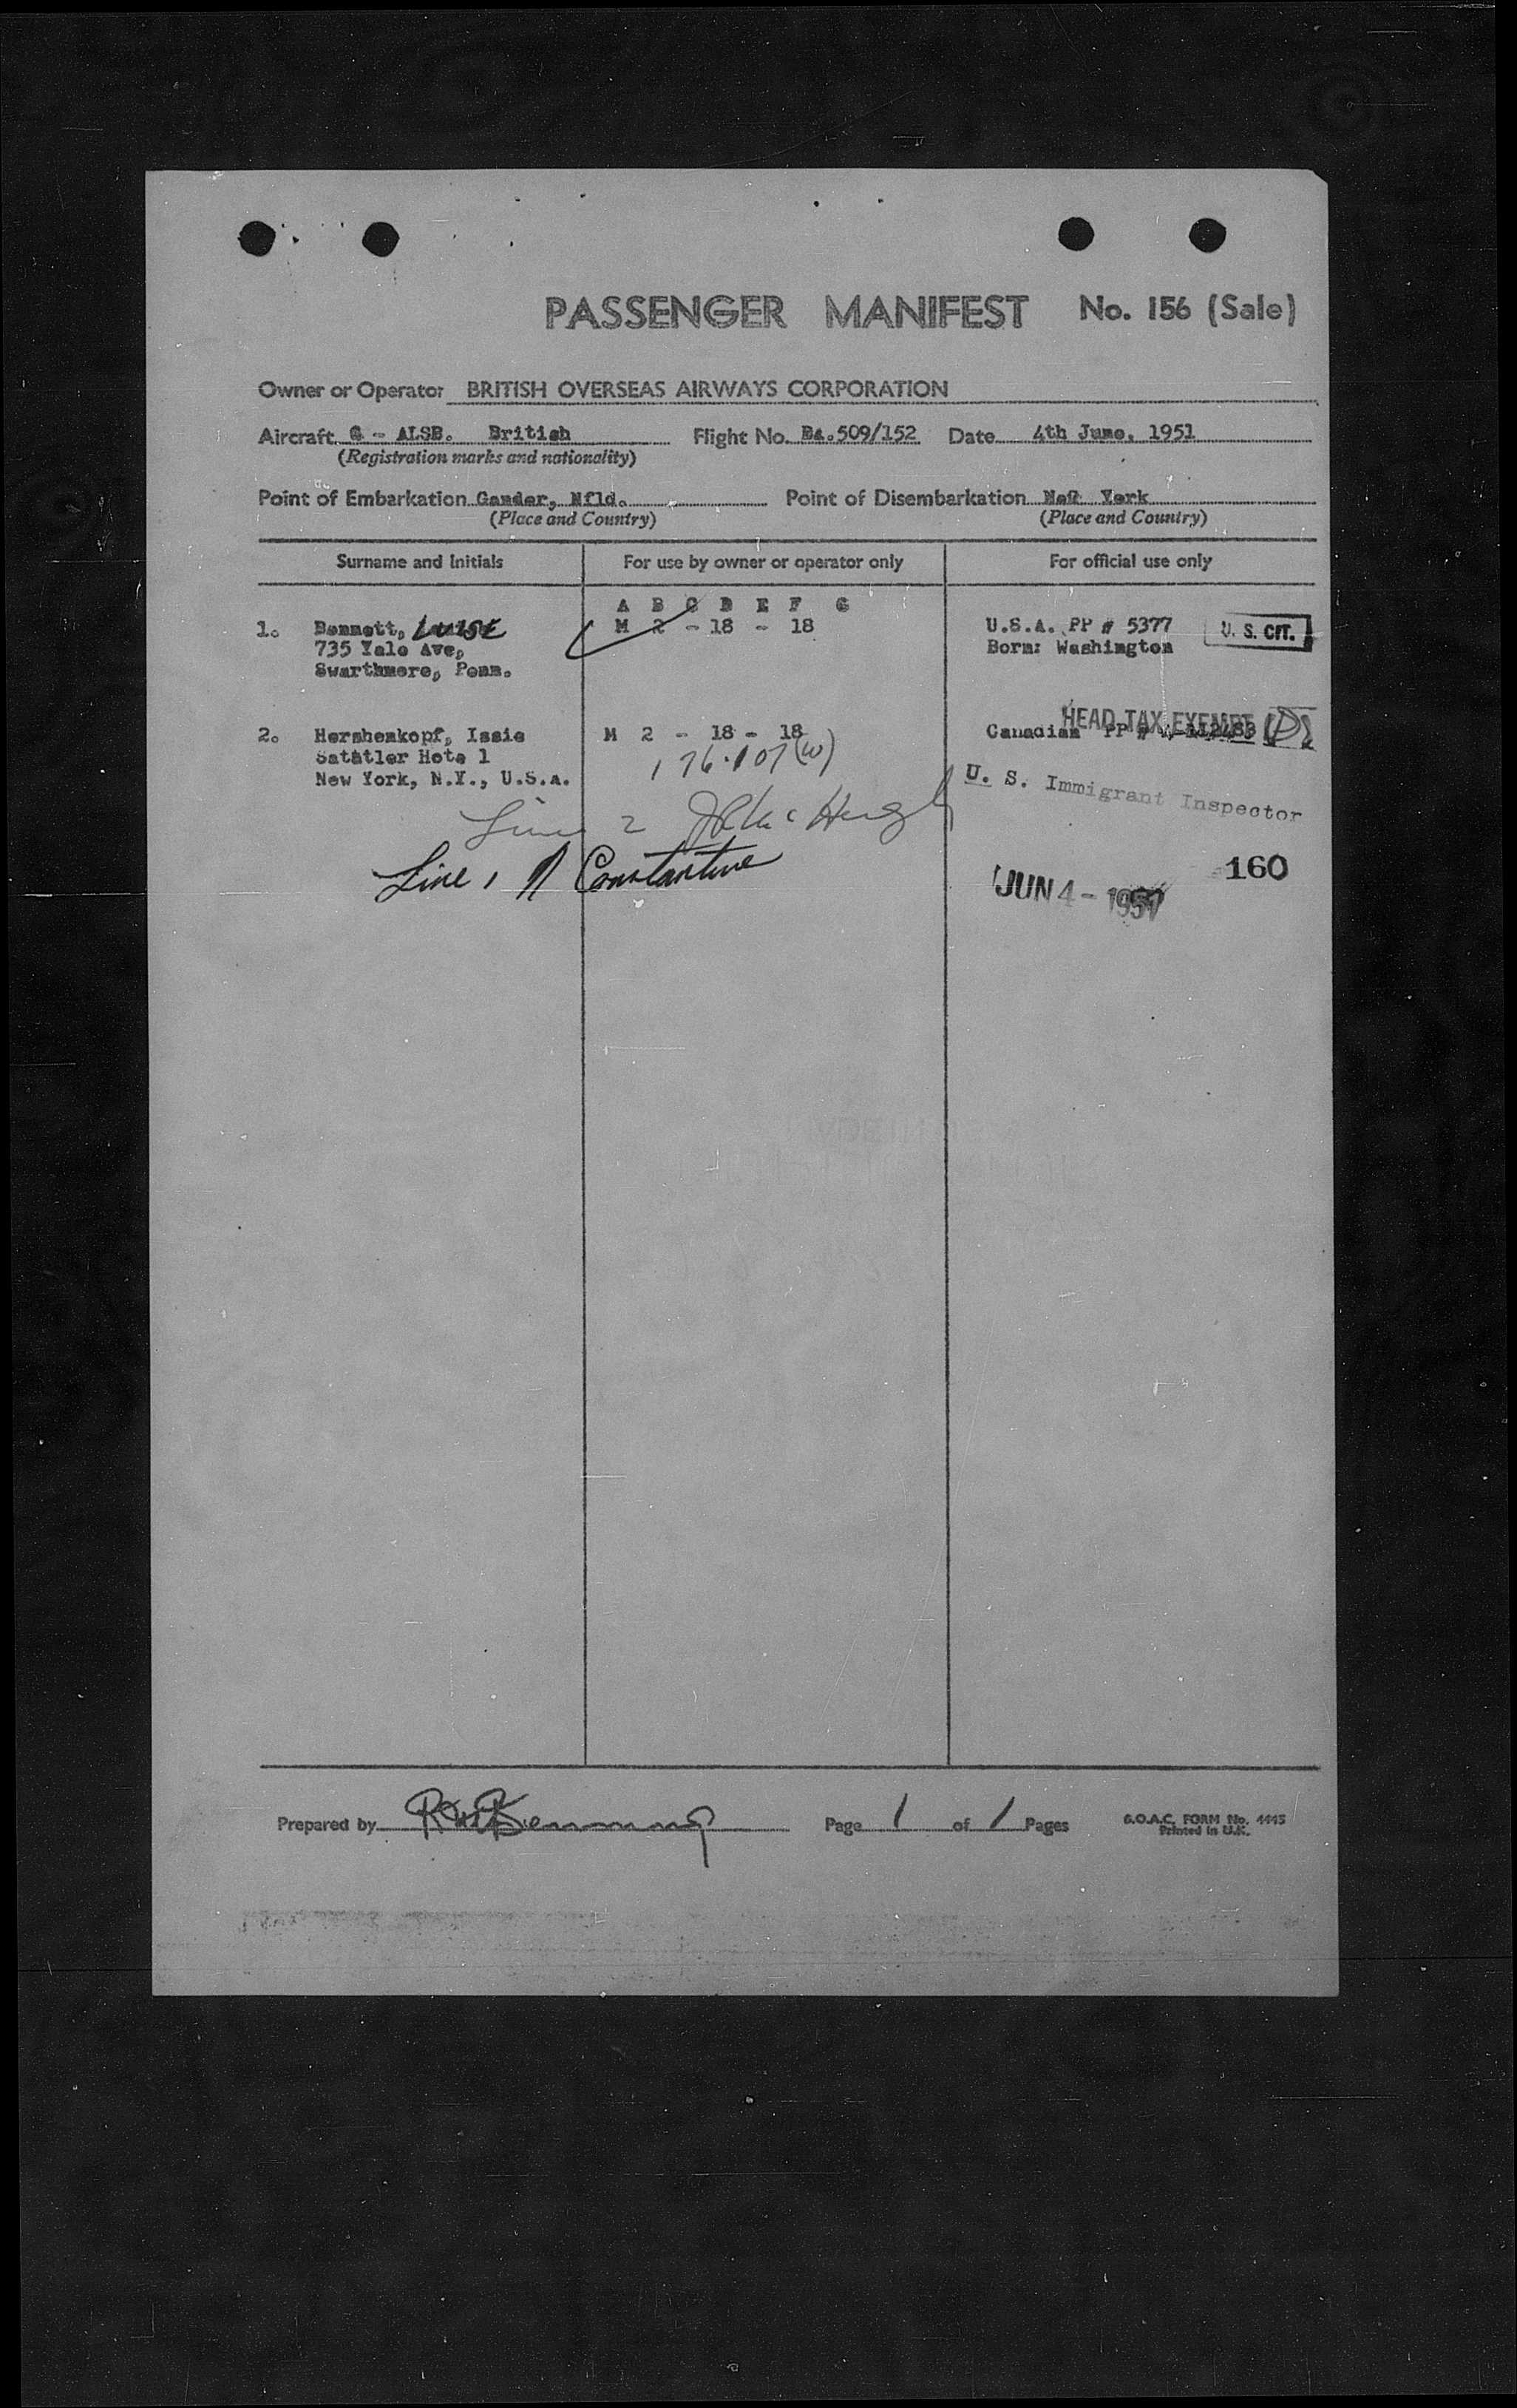 PASSENGER MANIFEST No. 156 (Sale)
Owner or Operator BRITISH OVERSEAS AIRWAYS CORPORATION
Aircraft G - ALSB. British Flight No. BA.509/152 Date 4th June, 1951
(Registration marks and nationality)
Point of Embarkation Gander, Nfld. Point of Disembarkation New York
(Place and Country) (Place and Country)
Surname and Initials For use by owner or operator only For official use only
A B C D E F G
1. Bennett, LUISE M 2 - 18 - 18 U.S.A. PP # 5377 U. S. CIT.
735 Yale Ave, Born: Washington
Swarthmore, Penn.
HEAD TAX EXEMPT (D)
2. Hershenkopf, Issie M 2 - 18 - 18 Canadian PP #
Satatler Hote l 176.107 (W)
New York, N.Y., U.S.A.
U. S. Immigrant Inspector
Line 2
Line 1 Constantine
160
JUN 4 - 1951
Prepared by Page 1 of 1 Pages B.O.A.C. FORM No. 4445
Printed in U.K.